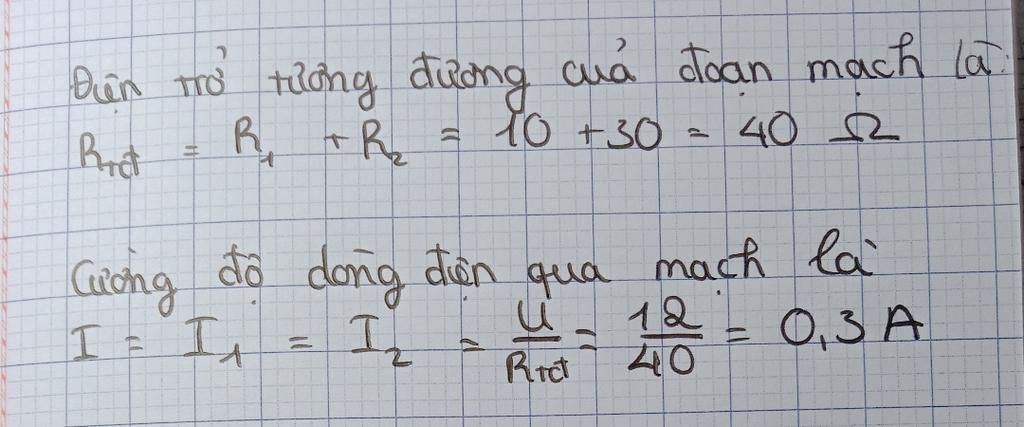 Điện trở tương đương của đoạn mạch là:
Rtđ = R₁ + R₂ = 10 + 30 = 40 Ω
Cường độ dòng điện qua mạch là
I = I₁ = I₂ = U/Rtđ = 12/40 = 0,3 A